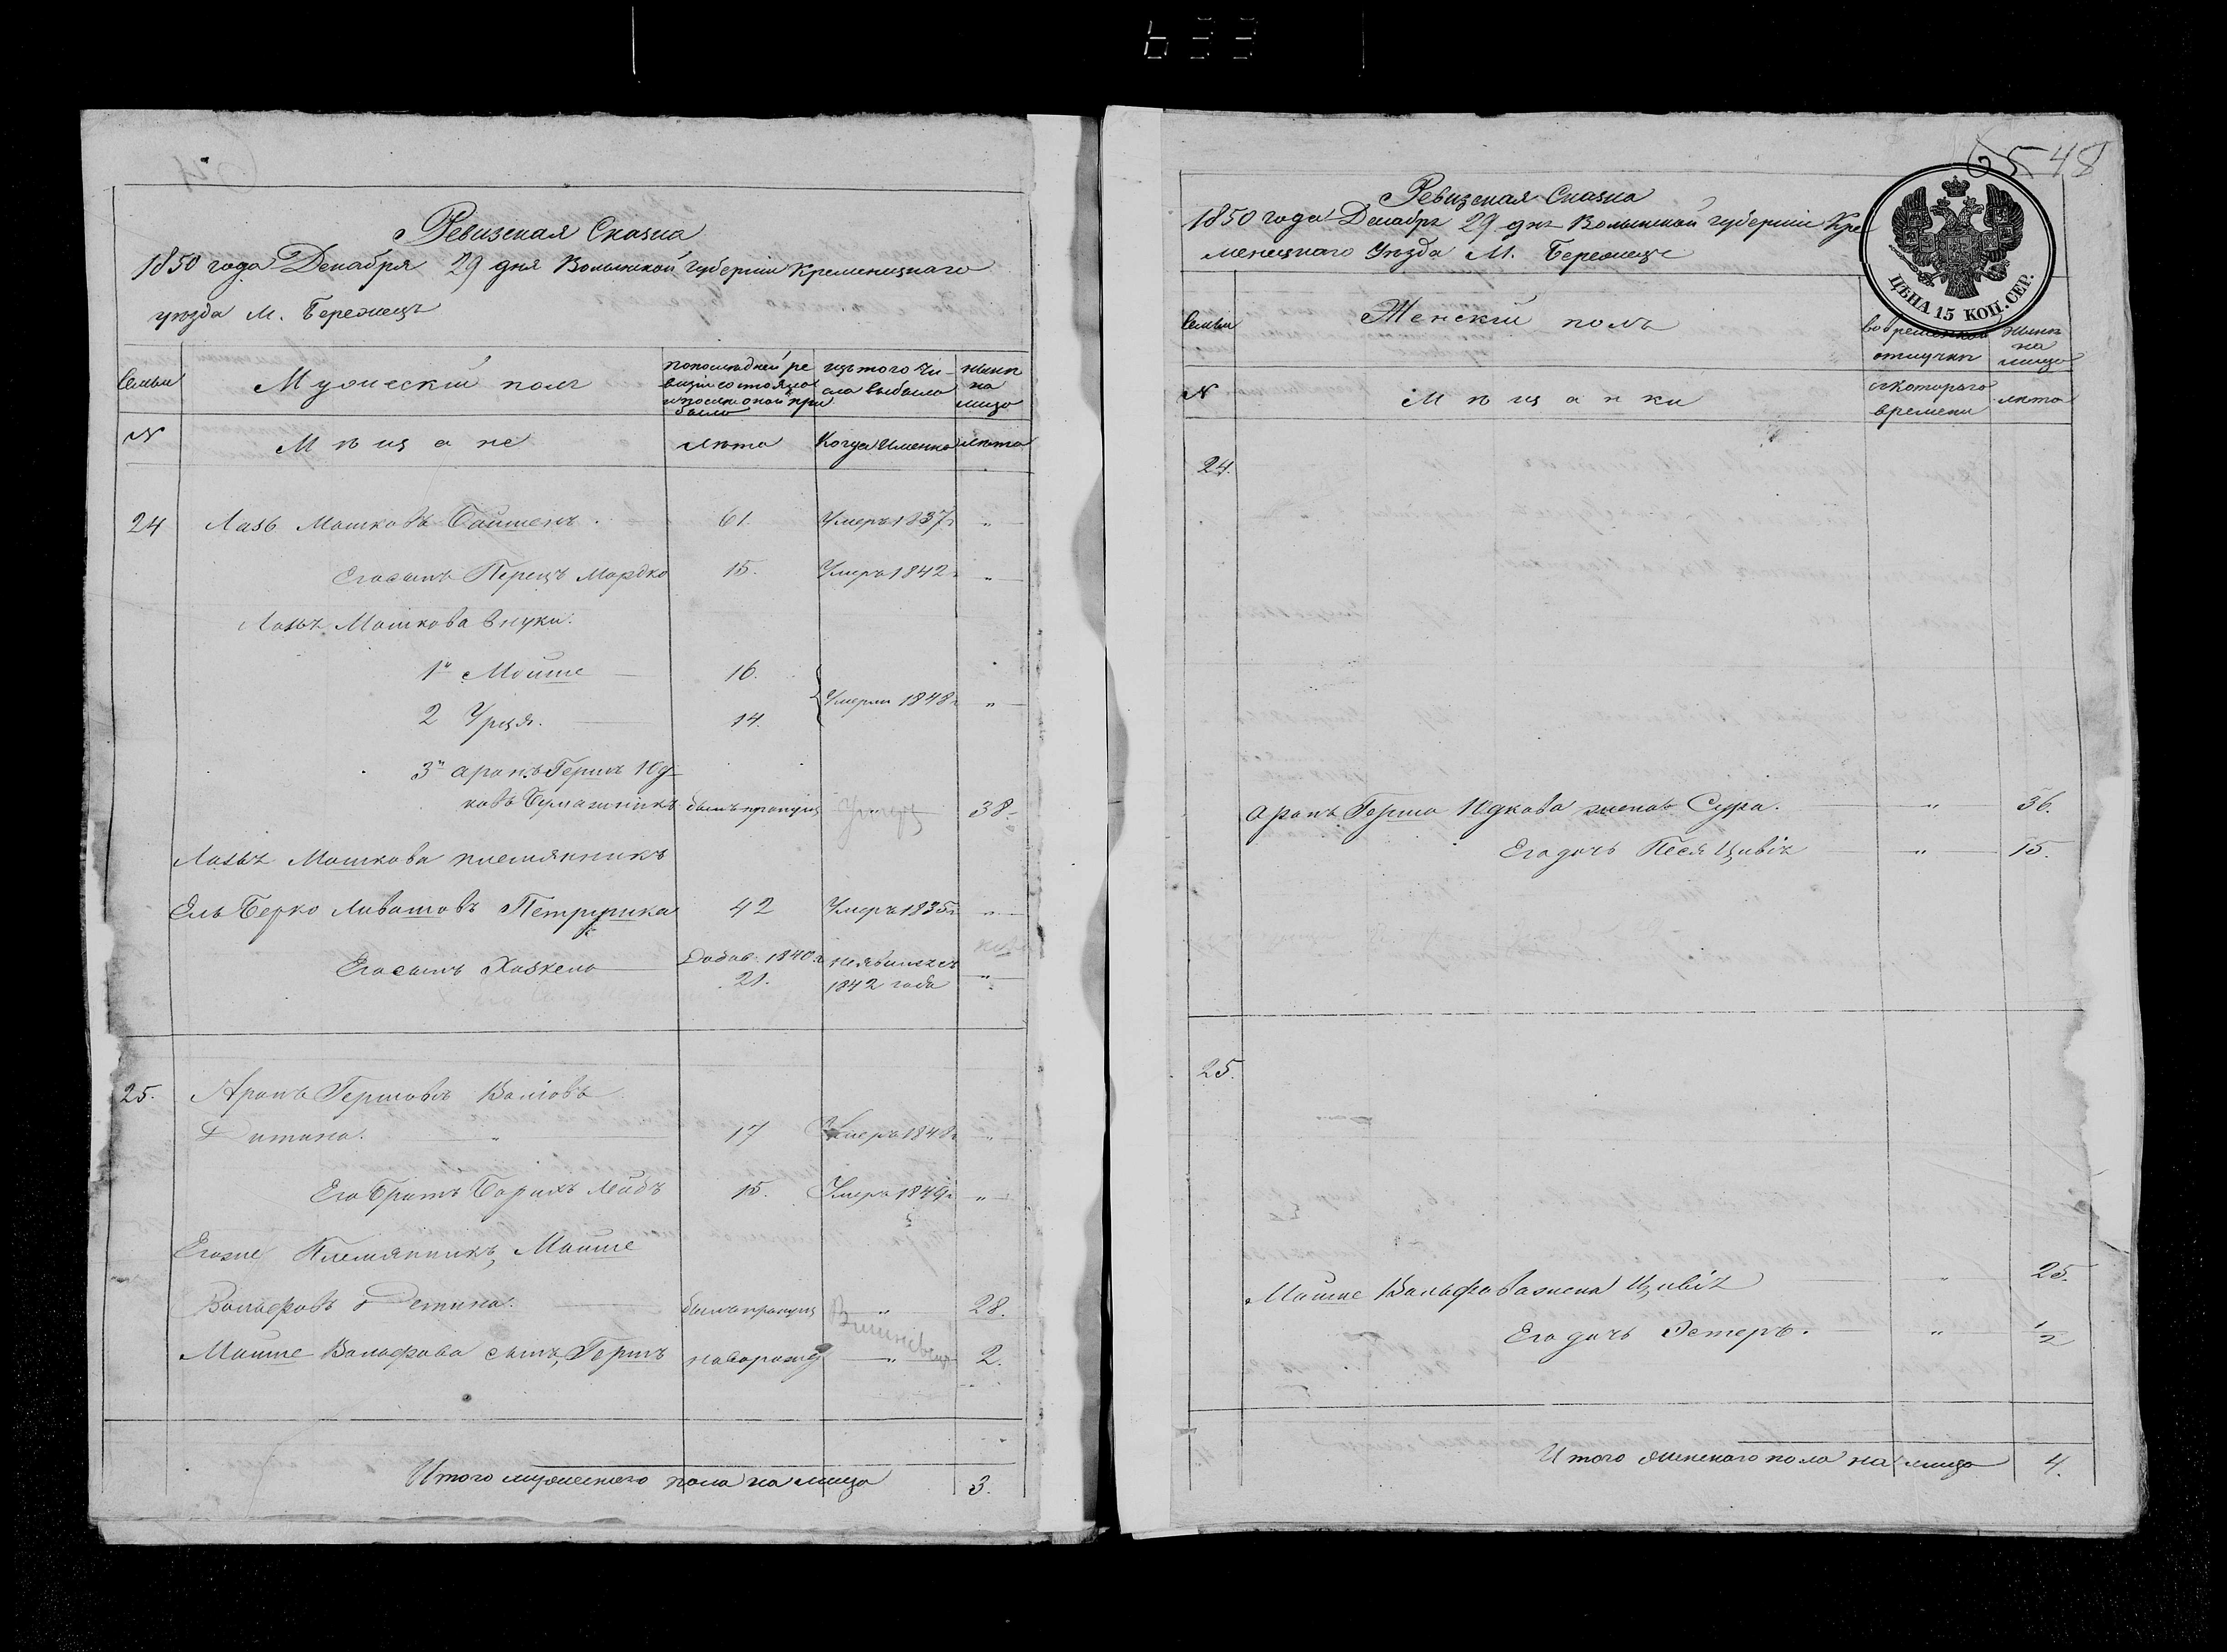 Ревизская Сказка
1850 года Декабря 29 дня Волынской губернии Кременецкаго
уезда М. Бережец
Семьи
Мужеский пол
по последней ре
визии состояло
и после оной при
было
из того чи-
сла выбыло
ныне
на
лицо
№
Мѣщане
лѣта
Когда Именно
лѣта
24
Лазь Мошковъ
61.
Умеръ 1837г
"
Его сынъ Перецъ Мордко
15.
Умеръ 1842г
"
Лазь Мошкова внуки.
1й Мойше
16.
2
14.
Умерли 1848г
"
3й Аронъ Гершъ Юд
ковъ
былъ пропущ
38
Лазь Мошкова племянникъ
Ель Берко Петрушка
42
Умеръ 1835г
"
Его сынъ Хаскель
Добав. 1840г
21.
неявился съ
1842 года
"
25.
Аронъ Гершовъ
Дитина.
17
Умеръ 1848г
"
Его братъ Борухъ Лейбъ
15.
Умеръ 1849г
"
Его же Племянникъ, Мойше
Вольфовъ Детина.
былъ пропущ
"
28.
Мойше Вольфова сынъ, Гершъ
новорожд
"
2.
Итого мужескаго пола на лицо
3.
65 48
Ревизская Сказка
1850 года Декабря 29 дня Волынской губернии Кре
менецкаго Уезда М. Бережец
ЦѢНА 15 КОП. СЕР.
Семьи
Женский полъ
во временной
отлучки
ныне
на
лицо
№
Мѣщанки
съ котораго
времени
лѣта
24.
Аронъ Герша Юдкова жена Сура.
"
36.
Его дочь Песя Цивiя
"
15.
25.
Мойше Вольфова жена Цивiя
"
25.
Его дочь Эстеръ.
"
1/2
Итого женскаго пола на лицо
4.